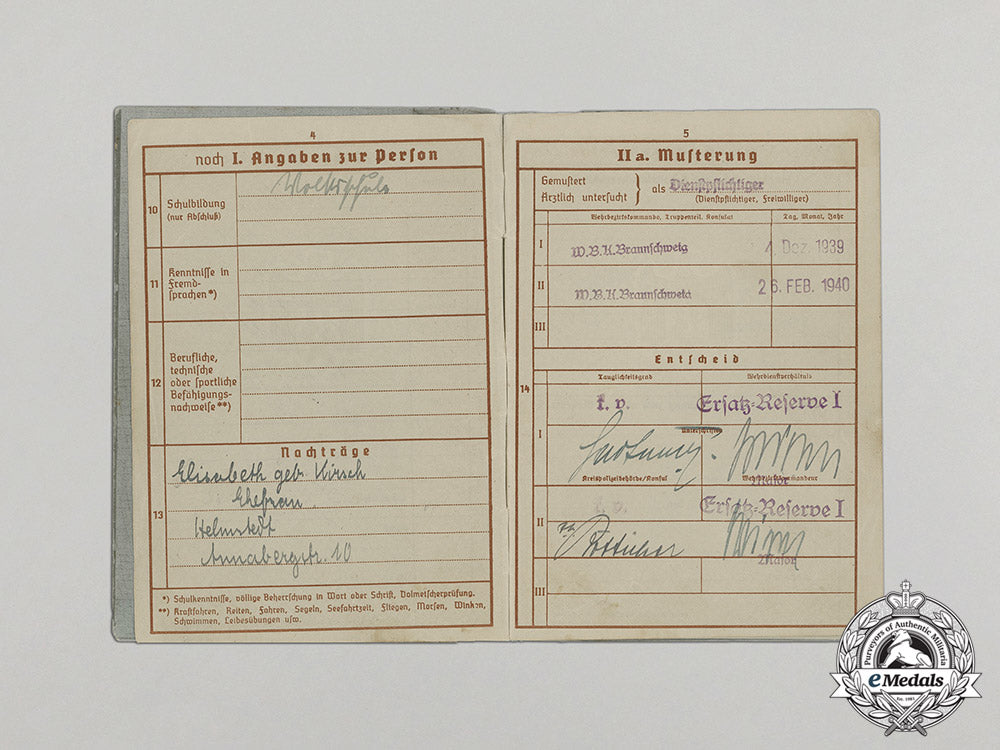 4
noch I. Angaben zur Person
10
Schulbildung
(nur Abschluß)
Volksschule
11
Kenntnisse in
Fremd-
sprachen*)
12
Berufliche,
technische
oder sportliche
Befähigungs-
nachweise**)
13
Nachträge
Elisabeth geb. Kirsch
Ehefrau
Helmstedt
Annabergstr. 10
*) Schulkenntnisse, völlige Beherrschung in Wort oder Schrift, Dolmetscherprüfung.
**) Kraftfahren, Reiten, Fahren, Segeln, Seefahrtzeit, Fliegen, Morsen, Winken,
Schwimmen, Leibesübungen usw.
5
IIa. Musterung
Gemustert
Ärztlich untersucht } als Dienstpflichtiger
(Dienstpflichtiger, Freiwilliger)
Wehrbezirkskommando, Truppenteil, Konsulat
Tag, Monat, Jahr
I
W.B.K. Braunschweig
4. Dez. 1939
II
W.B.K. Braunschweig
26. FEB. 1940
III
14
Entscheid
Tauglichkeitsgrad
Wehrdienstverhältnis
I
k. v.
Ersatz-Reserve I
Unterschriften
Kreispolizeibehörde/Konsul
Wehrbezirkskommandeur
Major
II
k. v.
Ersatz-Reserve I
Major
III
Purveyors of Authentic Militaria
eMedals
Est. 1985